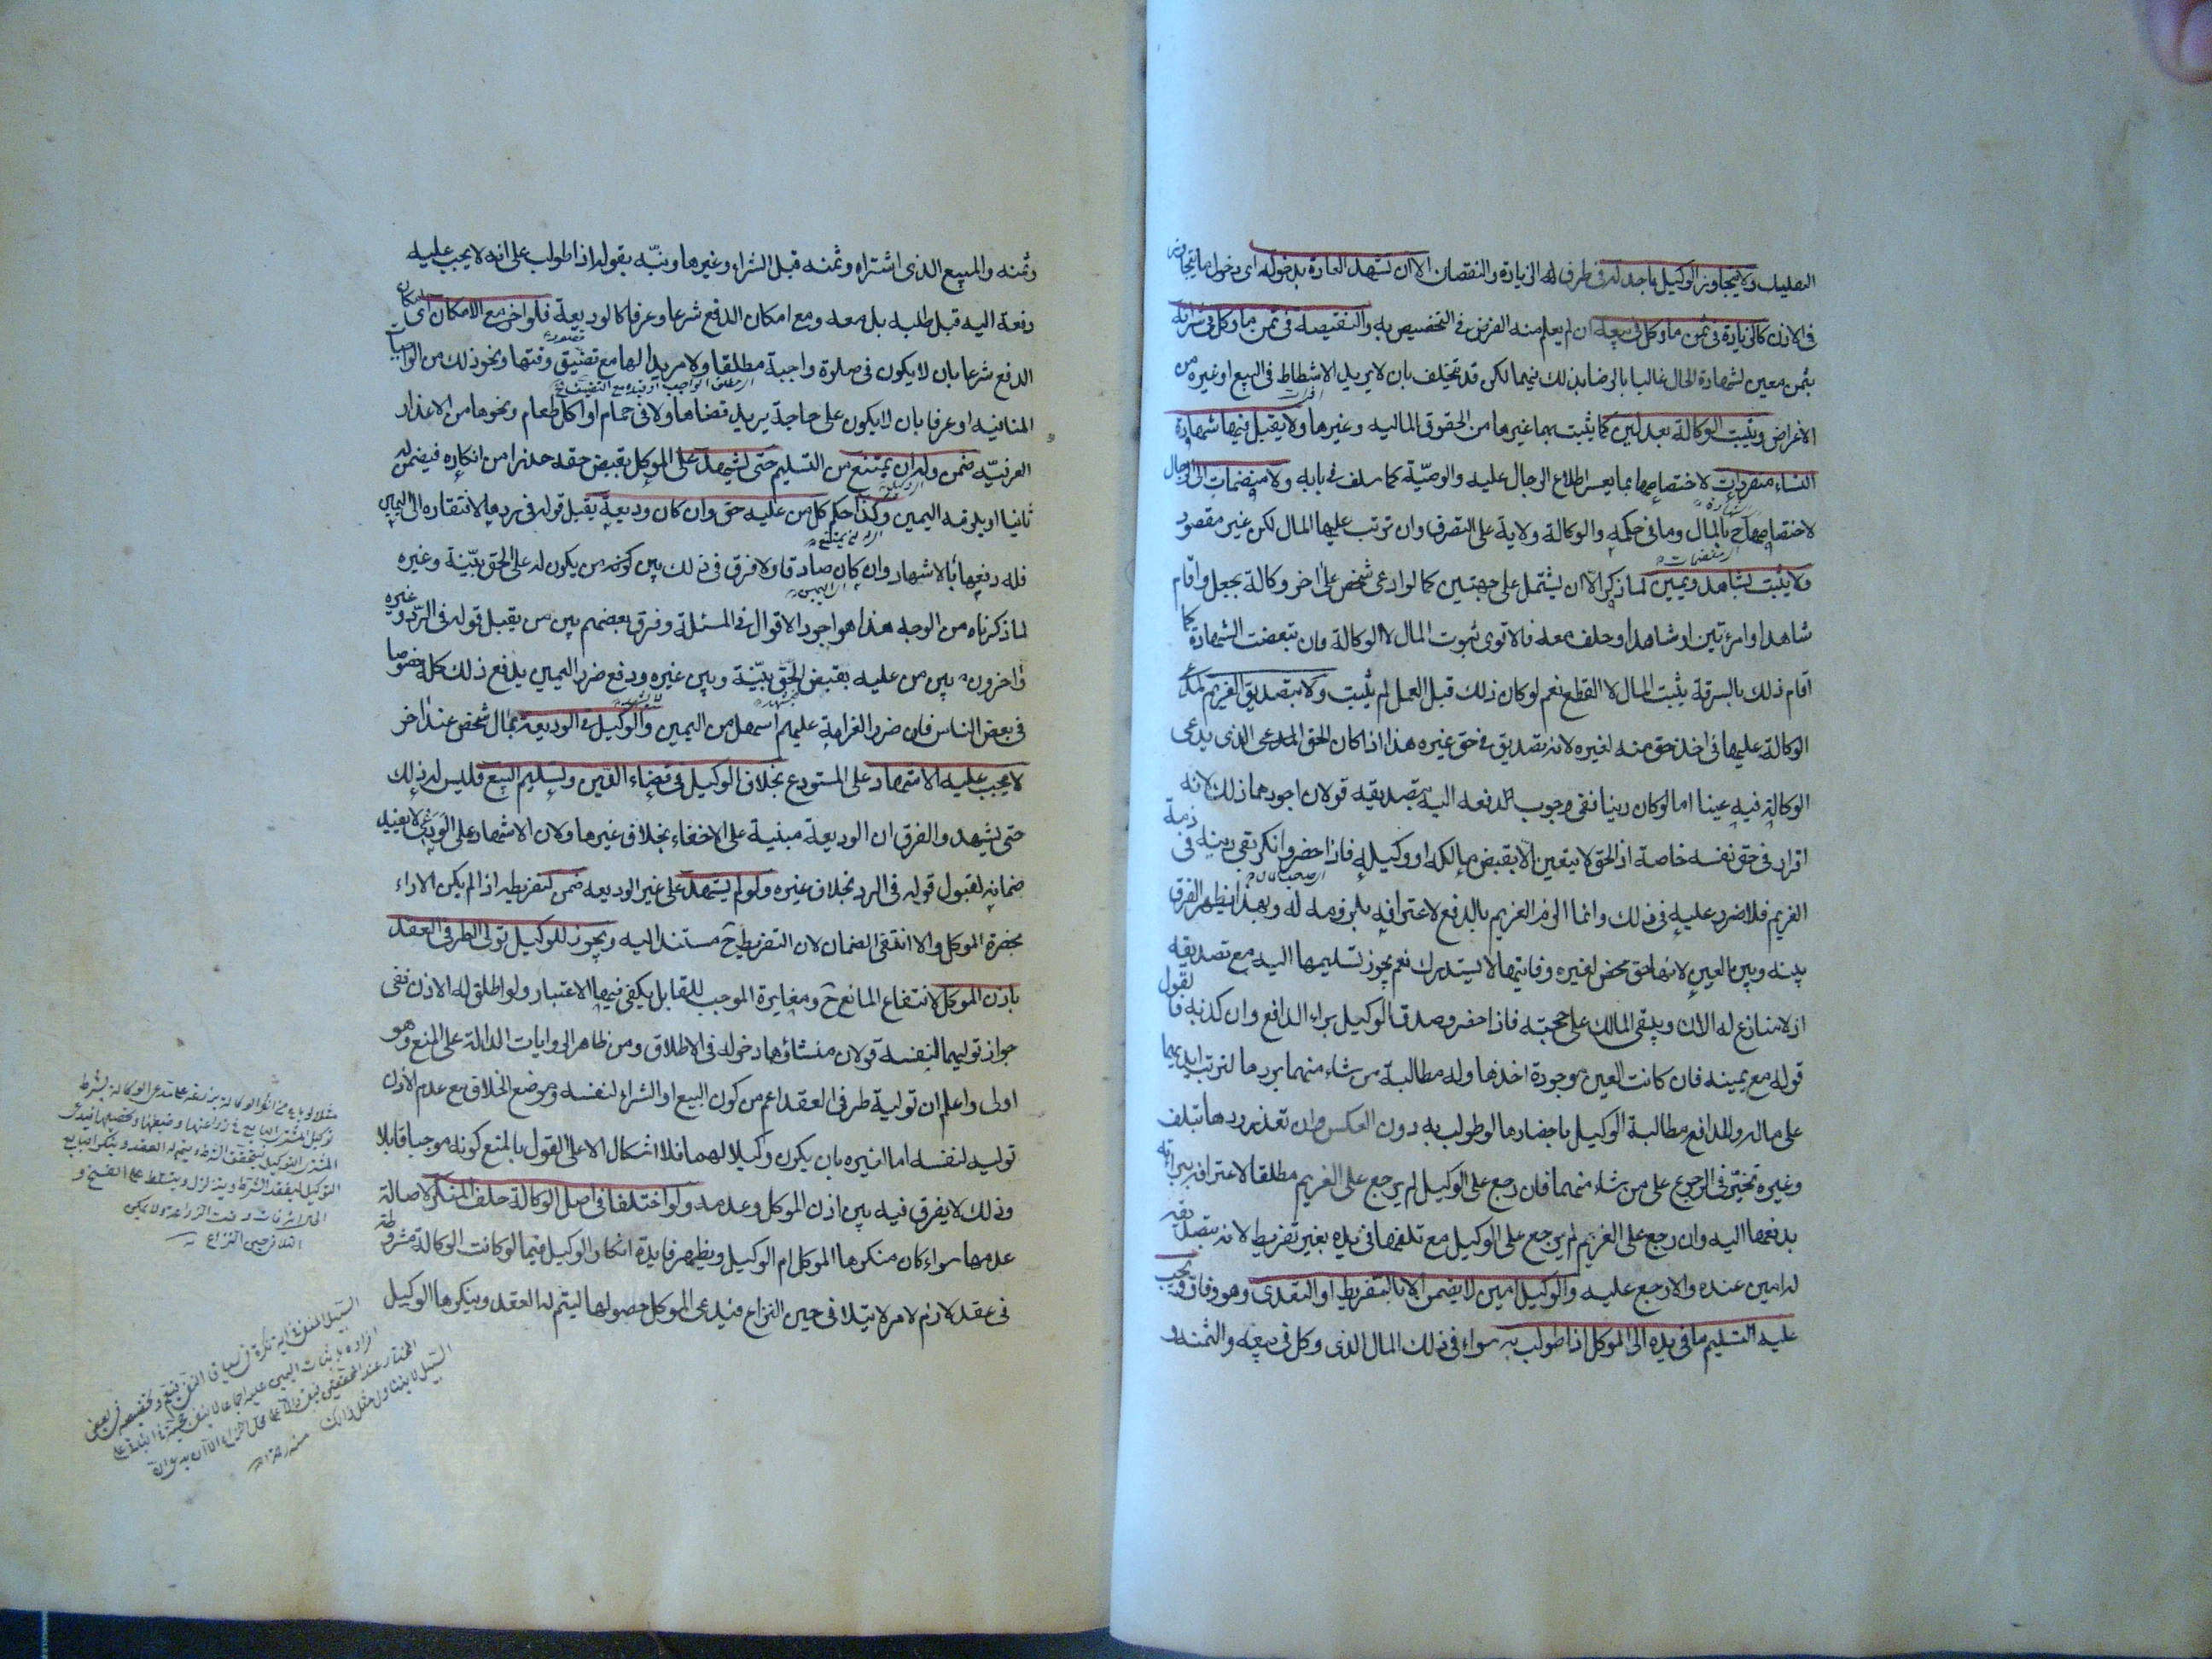 التعليل ولا يتجاوز الوكيل ما حد له في طرفي الزيادة والنقصان الا ان تشهد العادة بدخوله اى دخول ما يتجاوز
في الاذن كالزيادة في ثمن ما وكل في بيعه ان لم يعلم منه الغرض في التخصيص به والنقيصة في ثمن ما وكل في شرائه
بثمن معين لشهادة الحال غالبا بالرضا بذلك فيهما لكن قد يختلف بان لا يريد الاشطاط في البيع او غيره من
الاغراض وتثبت الوكالة بعدلين كما يثبت بهما غيرها من الحقوق المالية وغيرها ولا يقبل فيها شهادة
النساء منفردات لاختصاصها بما يعسر اطلاع الرجال عليه والوصيّة كما سلف في بابه ولا منضمات الى الرجال
لاختصاصها ح بالمال وما في حكمه والوكالة ولاية على التصرف وان ترتب عليها المال لكن غير مقصود
ولا يثبت بشاهد ويمين لما ذكر الا ان يشتمل على جهتين كما لو ادعى شخص على اخر وكالة بجعل واقام
شاهدا وامرءتين او شاهدا وحلف معه فالاقوى ثبوت المال لا الوكالة وان تبعضت الشهادة كما
اقام ذلك بالسرقة يثبت المال لا القطع نعم لو كان ذلك قبل العمل لم يثبت ولا بتصديق الغريم لمدعى
الوكالة عليها في اخذ حق منه لغيره لانه تصديق في حق غيره هذا اذا كان الحق المدعى الذى يدعى
الوكالة فيه عينا اما لو كان دينا ففى وجوب الدفعه اليه بتصديقه قولان اجودهما ذلك لانه
اقرار في حق نفسه خاصة اذ الحق لا يتعين الا بقبض مالكه او وكيله فاذا حضر وانكر بقى دينه في ذمة
الغريم فلا ضرر عليه في ذلك وانما الزم الغريم بالدفع لاعترافه بلزومه له وبهذا يظهر الفرق
بينه وبين العين لانها حق محض لغيره وفايتها لا يستدرك نعم يجوز تسليمها اليه مع تصديقه
اذ لا منازع له الان ويبقى المالك على حجته فاذا حضر وصدق الوكيل براء الدافع وان كذبه فالقول
قوله مع يمينه فان كانت العين موجودة اخذها وله مطالبة من شاء منهما بردها لترتب ايديهما
على ماله وللدافع مطالبة الوكيل باحضارها لو طولب به دون العكس وان تعذر ردها بتلف
وغيره تخيّر في الرجوع على من شاء منهما فان رجع على الوكيل لم يرجع على الغريم مطلقا لاعترافه ببراءته
بدفعها اليه وان رجع على الغريم لم يرجع على الوكيل مع تلفها في يده بغير تفريط لانه بتصديقه
له امين عنده والا رجع عليه والوكيل امين لا يضمن الا بالتفريط او التعدى وهو وفاق ويجب
عليه التسليم ما في يده الى الموكل اذا طولب به سواء في ذلك المال الذى وكل في بيعه والثمنه و
وثمنه والمبيع الذى اشتراه وثمنه قبل الشراء وغيرها ونبّه بقوله اذا طولب على انه لا يجب عليه
دفعة اليه قبل طلبه بل معه ومع امكان الدفع شرعا وعرفا كالوديعة فلو اخر مع الامكان اى امكان
الدفع شرعا بان لا يكون في صلوة واجبة مطلقا ولا مريدا لها مع تضيق وقتها ونحو ذلك من الواجبات
المنافية او عرفا بان لا يكون على حاجة يريد قضاها ولا في حمام او اكل طعام ونحوها من الاعذار
العرفيّه ضمن وله ان يمتنع من التسليم حتى يشهد على الموكل بقبض حقه حذرا من انكاره فيضمن له
ثانيا او يلزمه اليمين وكذا حكم كل من عليه حق وان كان وديعة يقبل قوله في ردها لافتقاره الى اليمين
فله دفعها بالاشهاد وان كان صادقا ولا فرق في ذلك بين كونه من يكون له على الحق بيّنة وغيره
لما ذكرناه من الوجه هذا هو اجود الاقوال في المسئلة وفرق بعضهم بين من يقبل قوله في الرّد وغيره
واخرون بين من عليه بقبض الحق بيّنة وبين غيره ودفع ضرر اليمين يدفع ذلك كله خصوصا
في بعض الناس فان ضرر الغرامة عليهم اسهل من اليمين والوكيل في الوديعة بمال شخص عند اخر
لا يجب عليه الاشهاد على المستودع بخلاف الوكيل في قضاء الدّين وتسليم البيع فليس له ذلك
حتى يشهد والفرق ان الوديعة مبنية على الاخفاء بخلاف غيرها ولان الاشهاد على الودعى لا يفيد
ضمانه لقبول قوله في الرد بخلاف غيره ولو لم يشهد على غير الوديعه ضمن لتفريطه اذا لم يكن الاداء
بحضرة الموكل والا انتفى الضمان لان التفريط ح مستند اليه ويجوز للوكيل تولى الطرفى العقد
باذن الموكل لانتفاع المانع ح ومغايرة الموجب للقابل يكفى فيها الاعتبار ولو اطلق له الاذن ففى
جواز توليهما لنفسه قولان منشاؤهما دخوله في الاطلاق ومن ظاهر الروايات الدالة على المنع وهو
اولى واعلم ان تولية طرفى العقد اعم من كون البيع او الشراء لنفسه وموضع الخلاف مع عدم الاذن
توليه لنفسه اما لغيره بان يكون وكيلا لهما فلا اشكال الا على القول بالمنع كونه موجبا قابلا
وذلك لا يفرق فيه بين اذن الموكل وعدمه ولو اختلفا في اصل الوكالة حلف المنكر لاصالة
عدمها سواء كان منكرها الموكل ام الوكيل ويظهر فايدة انكار الوكيل فيما لو كانت الوكالة مشروطة
في عقد لازم لامر لا يتلافى حين النزاع فيدعى الموكل حصولها ليتم له العقد وينكرها الوكيل